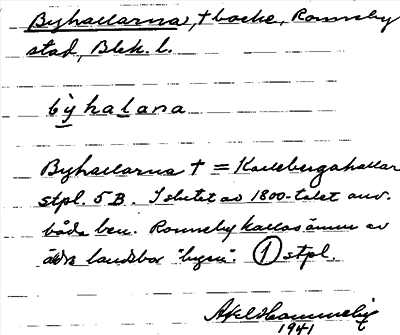 Byhallarna, † backe, Ronneby
stad, Blek. l.
byhalana
Byhallarna † = Karlebergahallar
stpl. 5 B. I slutet av 1800-talet anv.
båda ben. Ronneby kallas ännu av
äldre landsbor "byen". 1 stpl.
1941